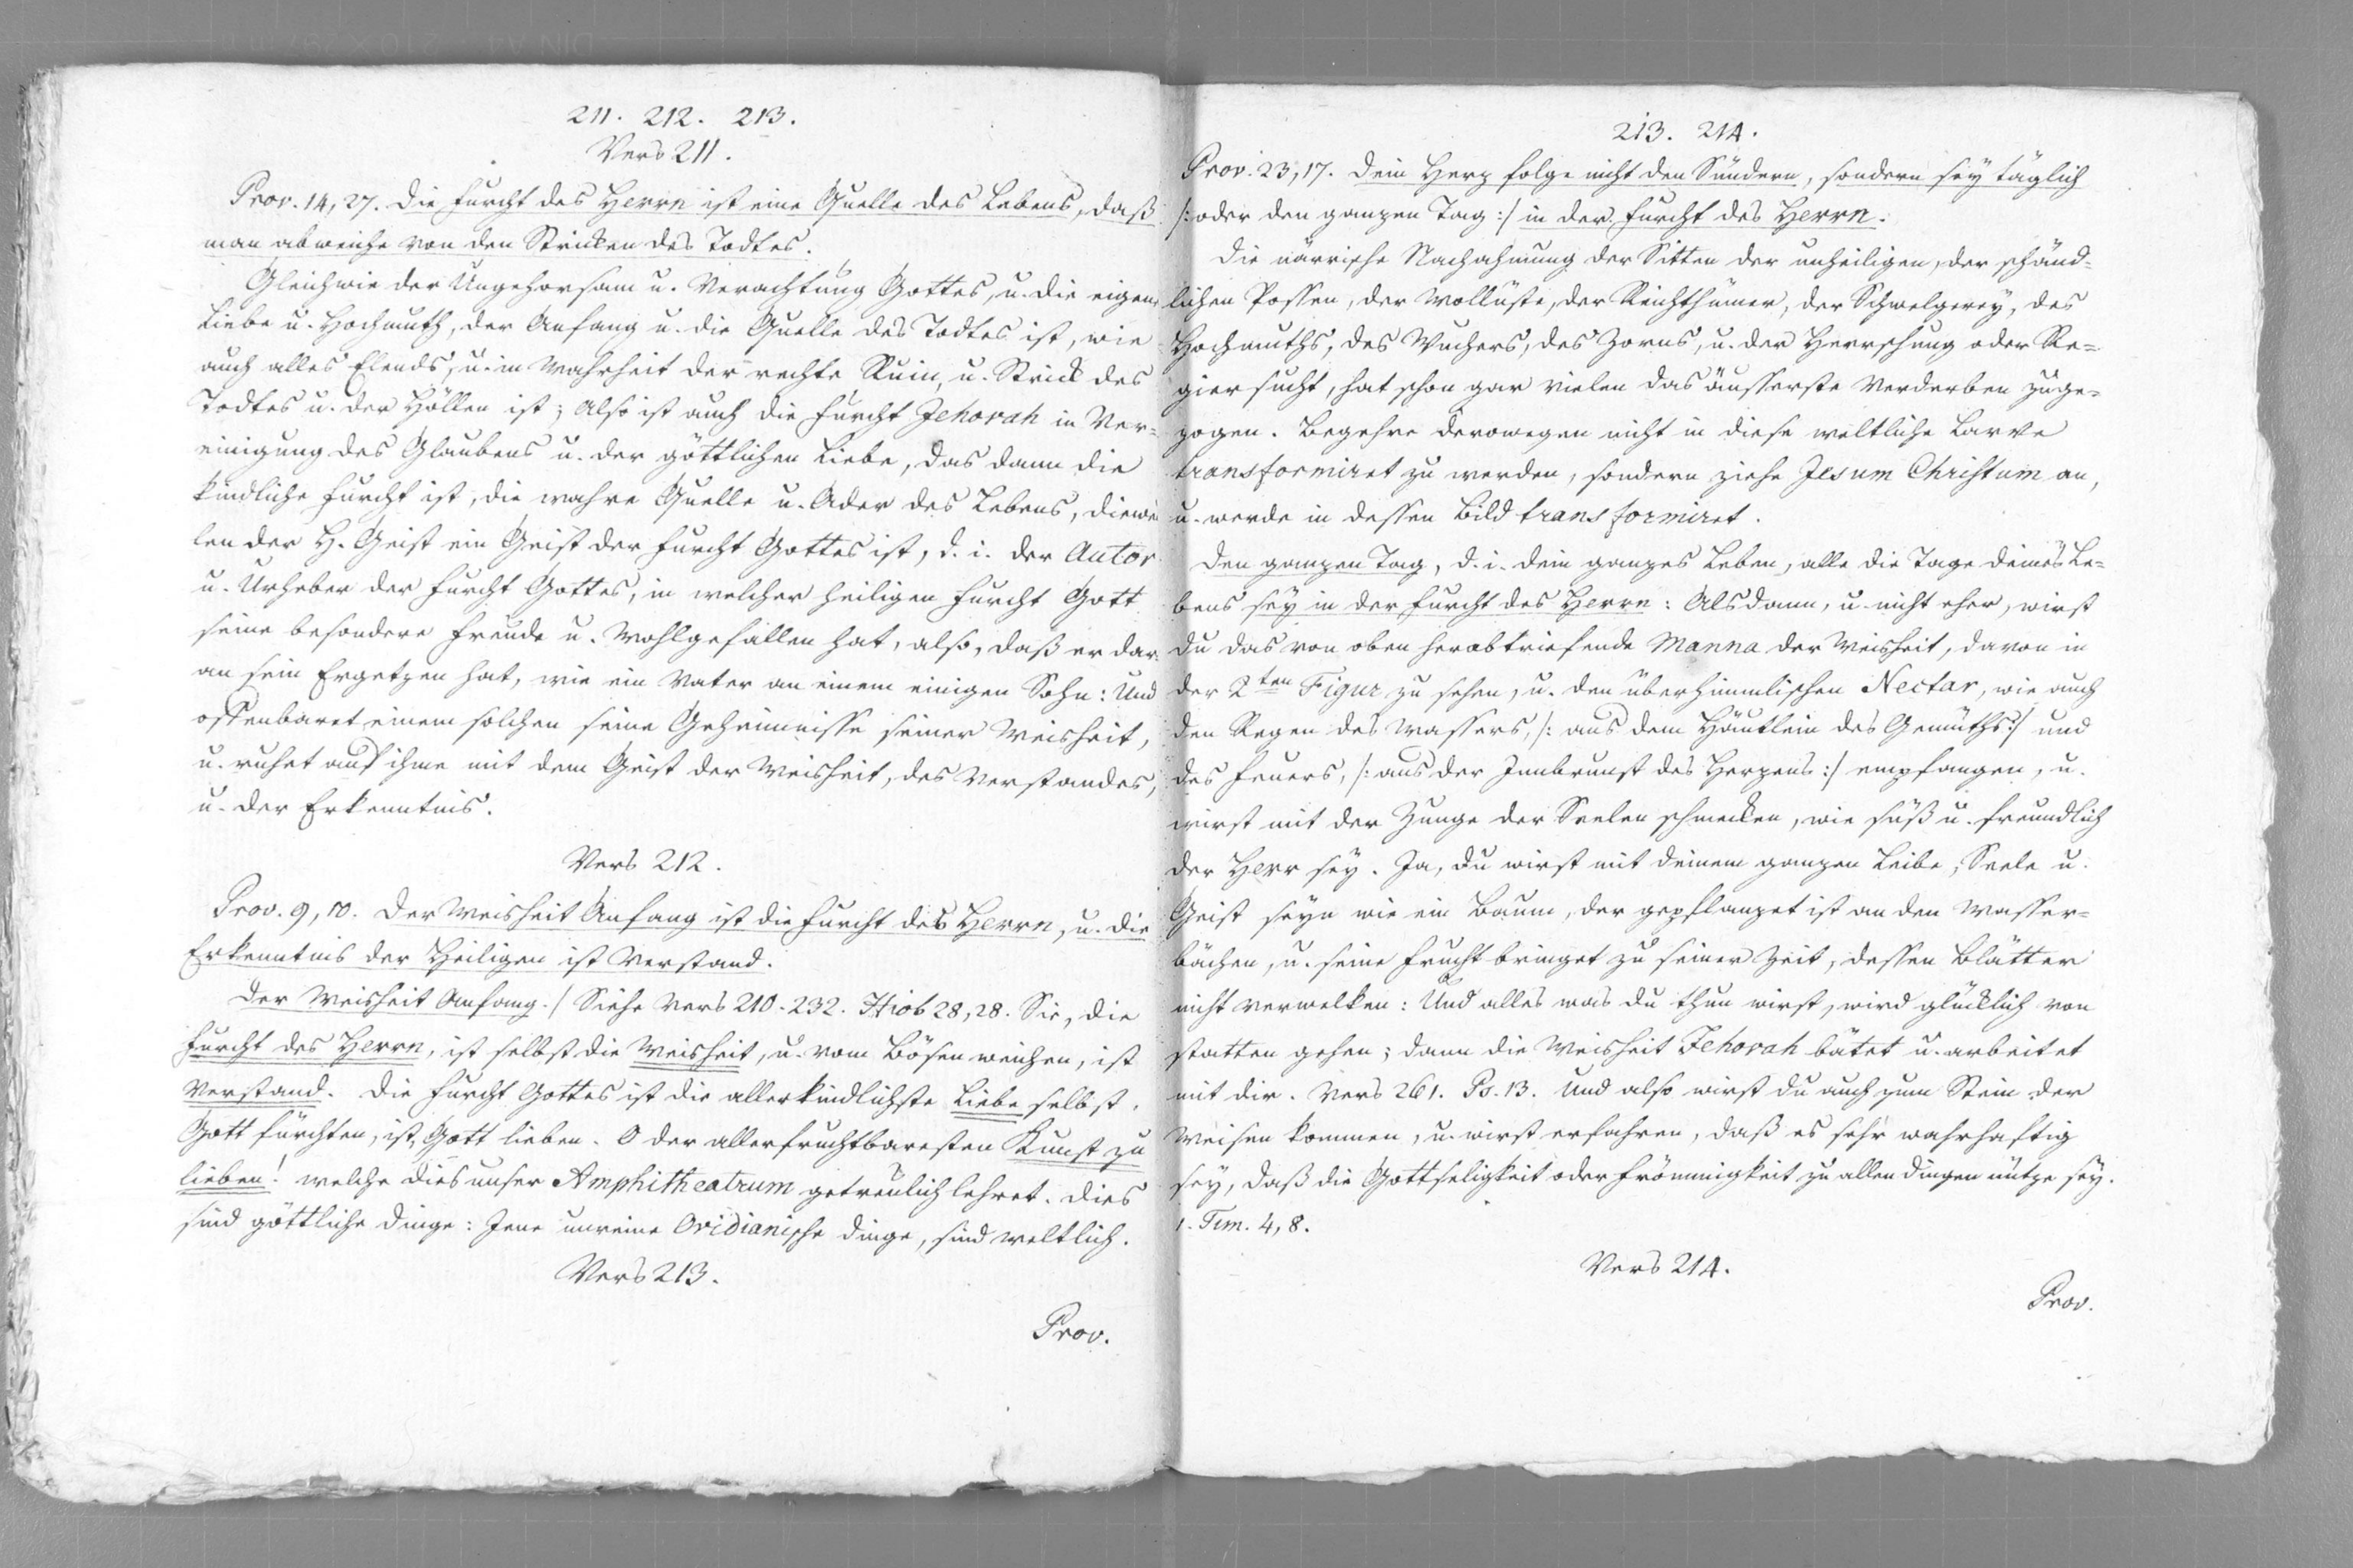 211. 212. 213.
Vers 211.
Prov. 14, 27. Die Furcht des Herrn ist eine Quelle des Lebens, daß
man abweiche von den Stricken des Todtes.
Gleichwie der Ungehorsam u. Verachtung Gottes, u. die eigene
Liebe u. Hochmuth, der Anfang u. die Quelle des Todtes ist, wie
auch alles Elends, u. in Wahrheit der rechte Ruin, u. Strick des
Todtes u. der Höllen ist; Also ist auch die Furcht Jehovah in Ver=
einigung des Glaubens u. der göttlichen Liebe, das dann die
kindliche Furcht ist, die wahre Quelle u. Ader des Lebens, diewei
len der H. Geist ein Geist der Furcht Gottes ist, d. i. der Autor
u. Urheber der Furcht Gottes, in welcher heiligen Furcht Gott
seine besondere Freude u. Wohlgefallen hat, also, daß er dar=
an sein Ergetzen hat, wie ein Vater an einem einigen Sohn: Und
offenbaret einem solchen seine Geheimnisse seiner Weisheit,
u. ruhet auf ihme mit dem Geist der Weisheit, des Verstandes,
u. der Erkenntnis.
Vers 212.
Prov. 9, 10. Der Weisheit Anfang ist die Furcht des Herrn, u. die
Erkenntnis der Heiligen ist Verstand.
Der Weisheit Anfang./ Siehe Vers 210. 232. Hiob 28, 28. Sie, die
Furcht des Herrn, ist selbst die Weisheit, u. vom Bösen weichen, ist
Verstand. Die Furcht Gottes ist die allerkindlichste Liebe selbst.
Gott fürchten, ist, Gott lieben. O der allerfruchtbaresten Kunst zu
lieben! welche dies unser Amphitheatrum getreulich lehret. Dies
sind göttliche Dinge: Jene unreine Ovidianische Dinge, sind weltlich.
Vers 213.
Prov.
213. 214.
Prov. 23, 17. Dein Herz folge nicht den Sündern, sondern sey täglich
/: oder den ganzen Tag :/ in der Furcht des Herrn.
Die närrische Nachahmung der Sitten der unheiligen, der schänd=
lichen Possen, der Wollüste, der Reichthümer, der Schwelgerey, des
Hochmuths, des Wuchers, des Zorns, u. der Herrschung oder Re=
giersucht, hat schon gar vielen das äusserste Verderben zuge=
zogen. Begehre derowegen nicht in diese weltliche Larve
transformiret zu werden, sondern ziehe Jesum Christum an,
u. werde in dessen Bild transformiret.
Den ganzen Tag, d. i. dein ganzes Leben, alle die Tage deines Le=
bens sey in der Furcht des Herrn: Alsdann, u. nicht eher, wirst
du das von oben herabtriefende Manna der Weisheit, davon in
der 2ten Figur zu sehen, u. den überhimmlischen Nectar, wie auch
den Regen des Wassers, /: aus dem Häutlein des Gemüths :/ und
des Feuers, /: aus der Innbrunst des Herzens :/ empfangen, u.
wirst mit der Zunge der Seelen schmecken, wie süß u. freundlich
der Herr sey. Ja, du wirst mit deinem ganzen Leibe, Seele u.
Geist seyn wie ein Baum, der gepflanzet ist an den Wasser=
bächen, u. seine Frucht bringet zu seiner Zeit, dessen Blätter
nicht verwelken: Und alles was du thun wirst, wird glücklich von
statten gehen; dann die Weisheit Jehovah bätet u. arbeitet
mit dir. Vers 261. Ps. 13. Und also wirst du auch zum Stein der
Weisen kommen, u. wirst erfahren, daß es sehr wahrhaftig
sey, daß die Gottseligkeit oder Frömmigkeit zu allen Dingen nütze sey.
1. Tim. 4, 8.
Vers 214.
Prov.